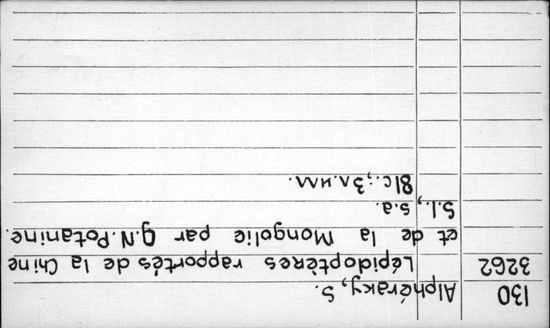 130 Alphéraky, S.
3262 Lépidoptères rapportés de la Chine
et de la Mongolie par G.N.Potanine.
S.l., s.a.
81c.; 3л.илл.